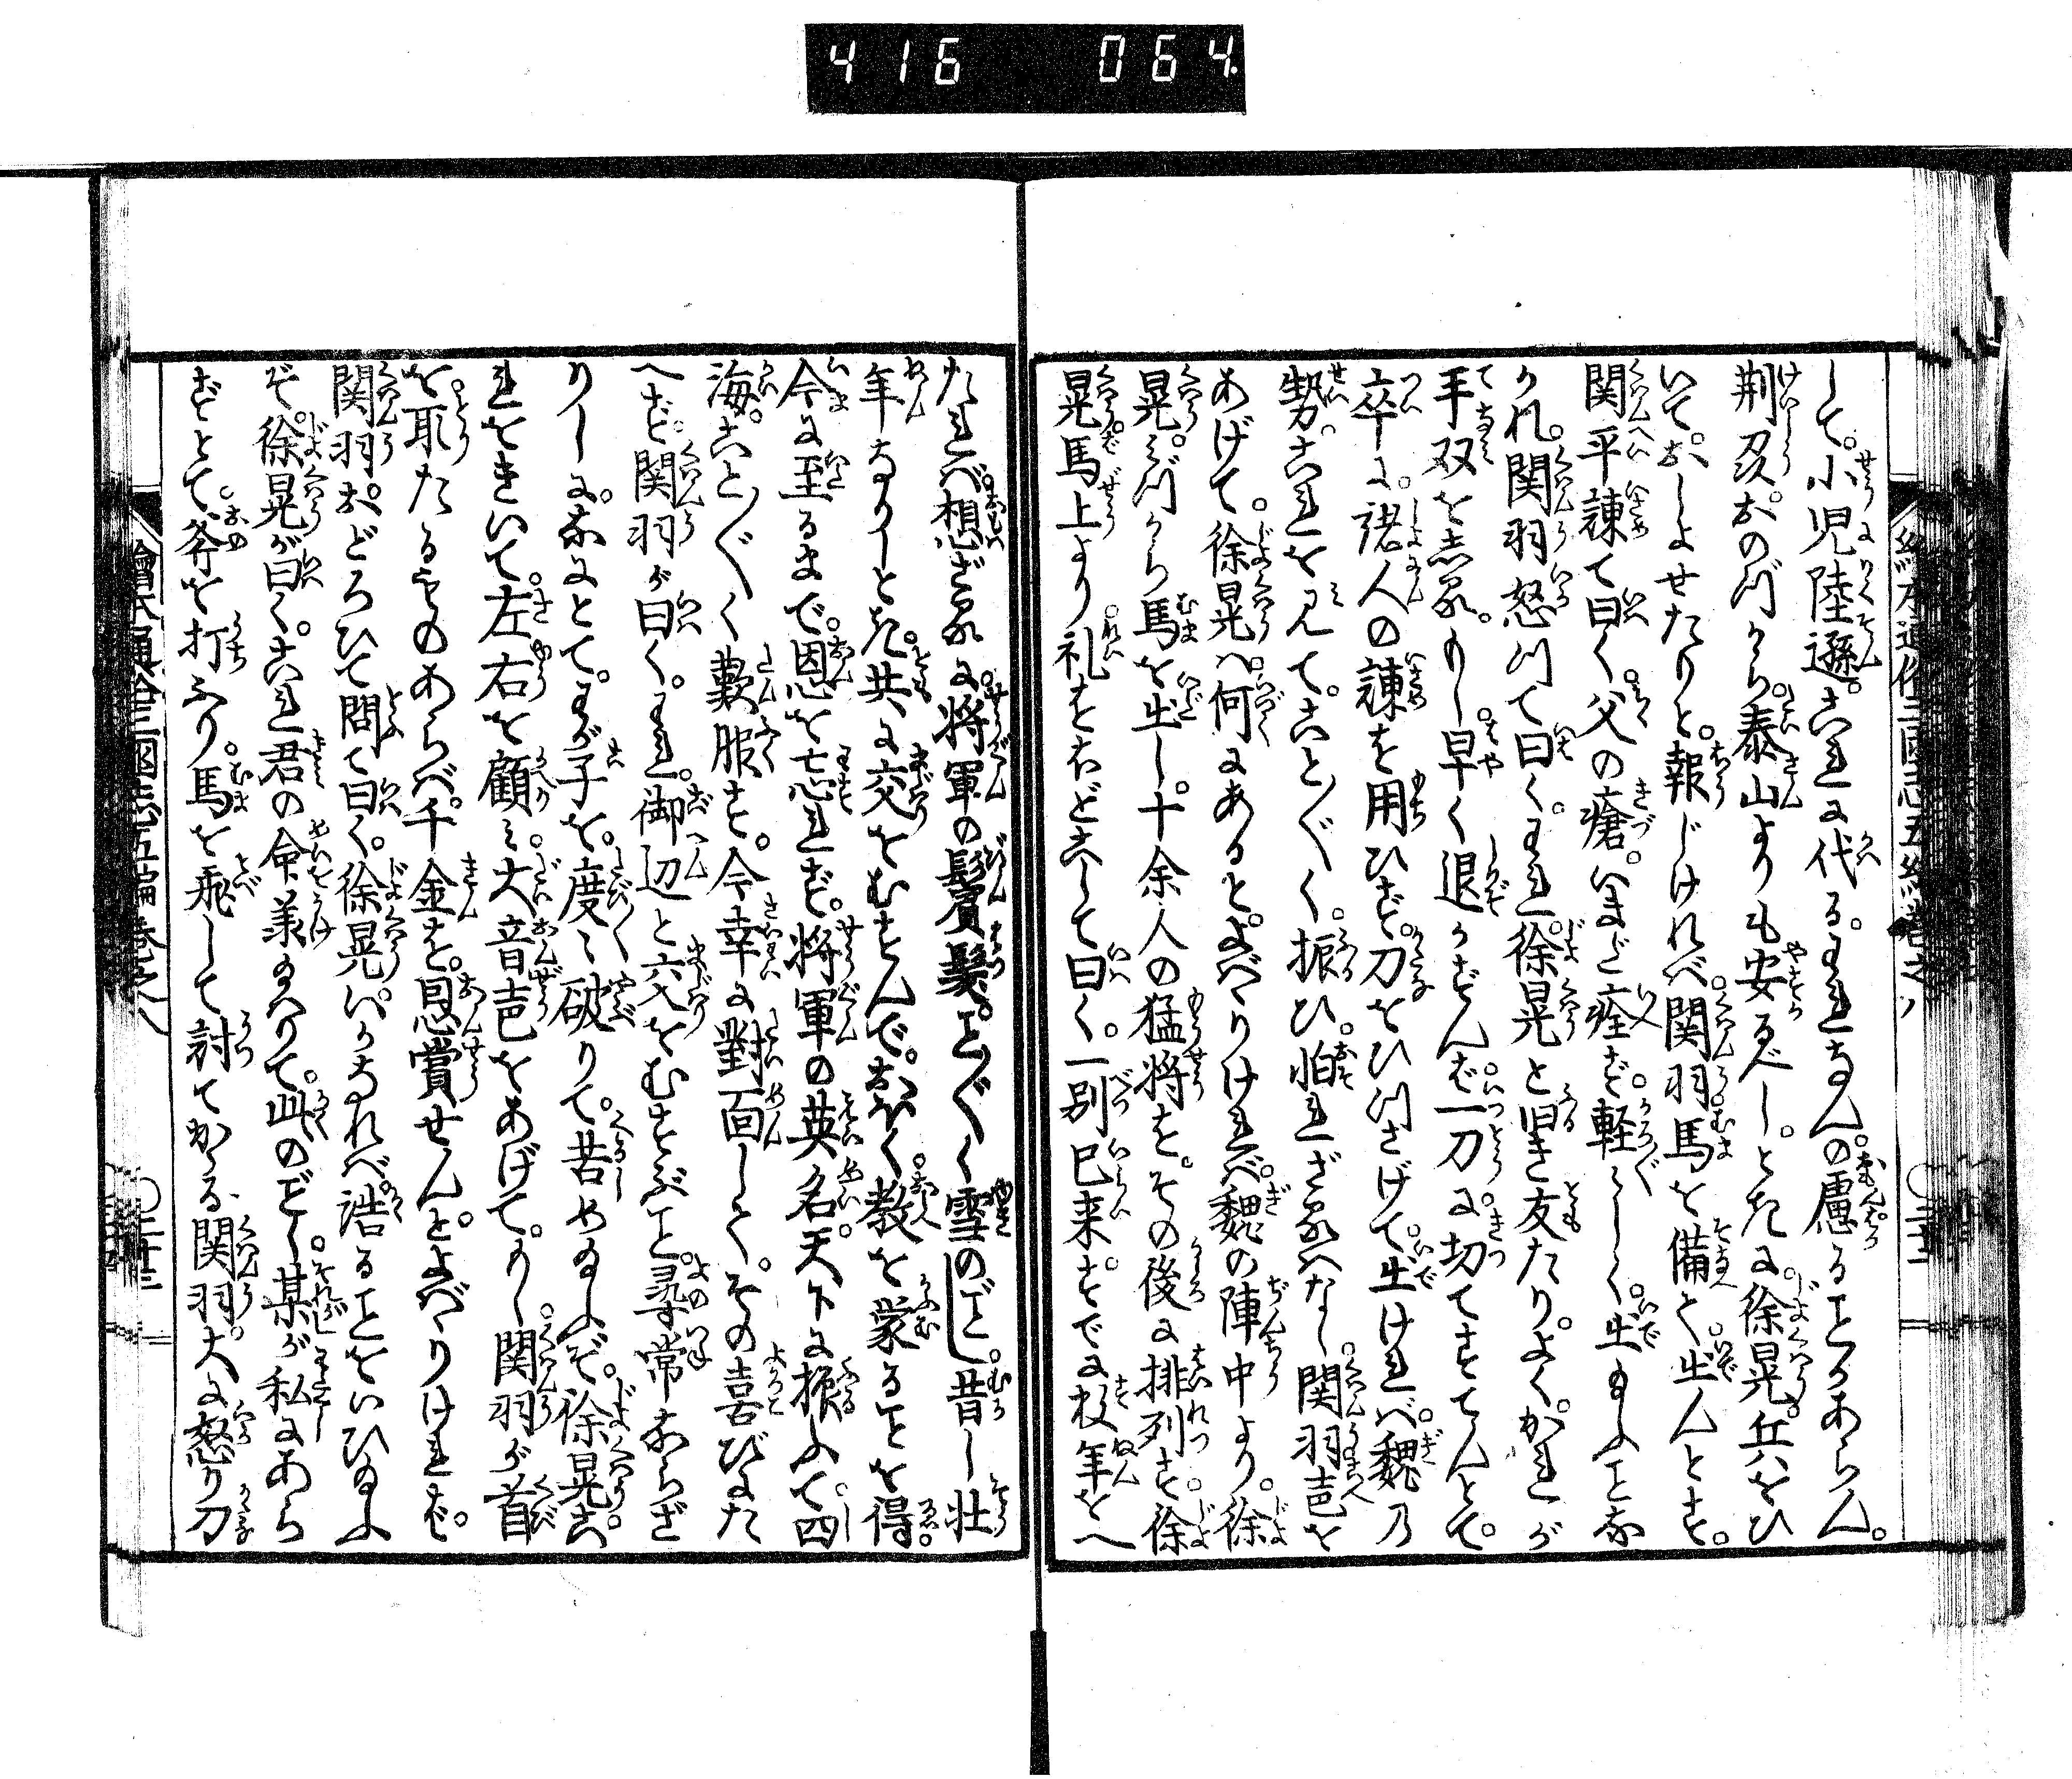 416 064.
して。小児陸遜。これに代る。われなんの慮ることかあらん。
荊及おのづから泰山よりも安るべし。ときに徐晃兵をひ
いて。おしよせたりと。報じければ関羽馬を備て出んとす。
関平諌て曰く。父の瘡。いまだ痊ず。軽々しく出給ふことな
かれ。関羽怒つて曰く。われ徐晃と旧き友たり。よくかれが
手双を知れり。早く退かずんば一刀に切てすてんとて。
卒に。諸人の諌を用ひず。刀をひつさげて。出ければ魏乃
勢。これを見て。ことごとく。振ひ。怕れざるハなし関羽声を
あげて。徐晃ハ何にあると。よばハりければ。魏の陣中より。徐
晃。みづから馬を出し。十余人の猛将を。その後に排列す。徐
晃馬上より礼をほどこして曰く。一別已来すでに数年をへ
たれば想ざるに将軍の鬢髪。ことごとく雪のごとし。昔し壮
年なりしとき。共に交をむすんで。おほく教を蒙ることを得
今に至るまで。恩を忘れず。将軍の英名天下に振ふて。四
海。ことごとく歎服す。今幸に對面して。その喜びにた
へず関羽が曰く。われ。御辺と交をむすぶこと。尋常ならざ
りしに。なにとて。わが子を。度々破りて。苦やめるぞ。徐晃こ
れをきいて。左右を顧ミ。大音声をあげて。もし関羽が首
を取たるものあらバ。千金を恩賞せんと。よばハりければ。
関羽おどろひて問て曰く。徐晃ハ。かなれバ。誥ることをいひ給ふ
ぞ。徐晃が曰く。これ君の命。義給ハりて。此のごとし。某が私にあら
ずとて。斧を打ふり。馬を飛して討てかかる。関羽。大に怒り刀
繪本通俗三國志五編巻之八